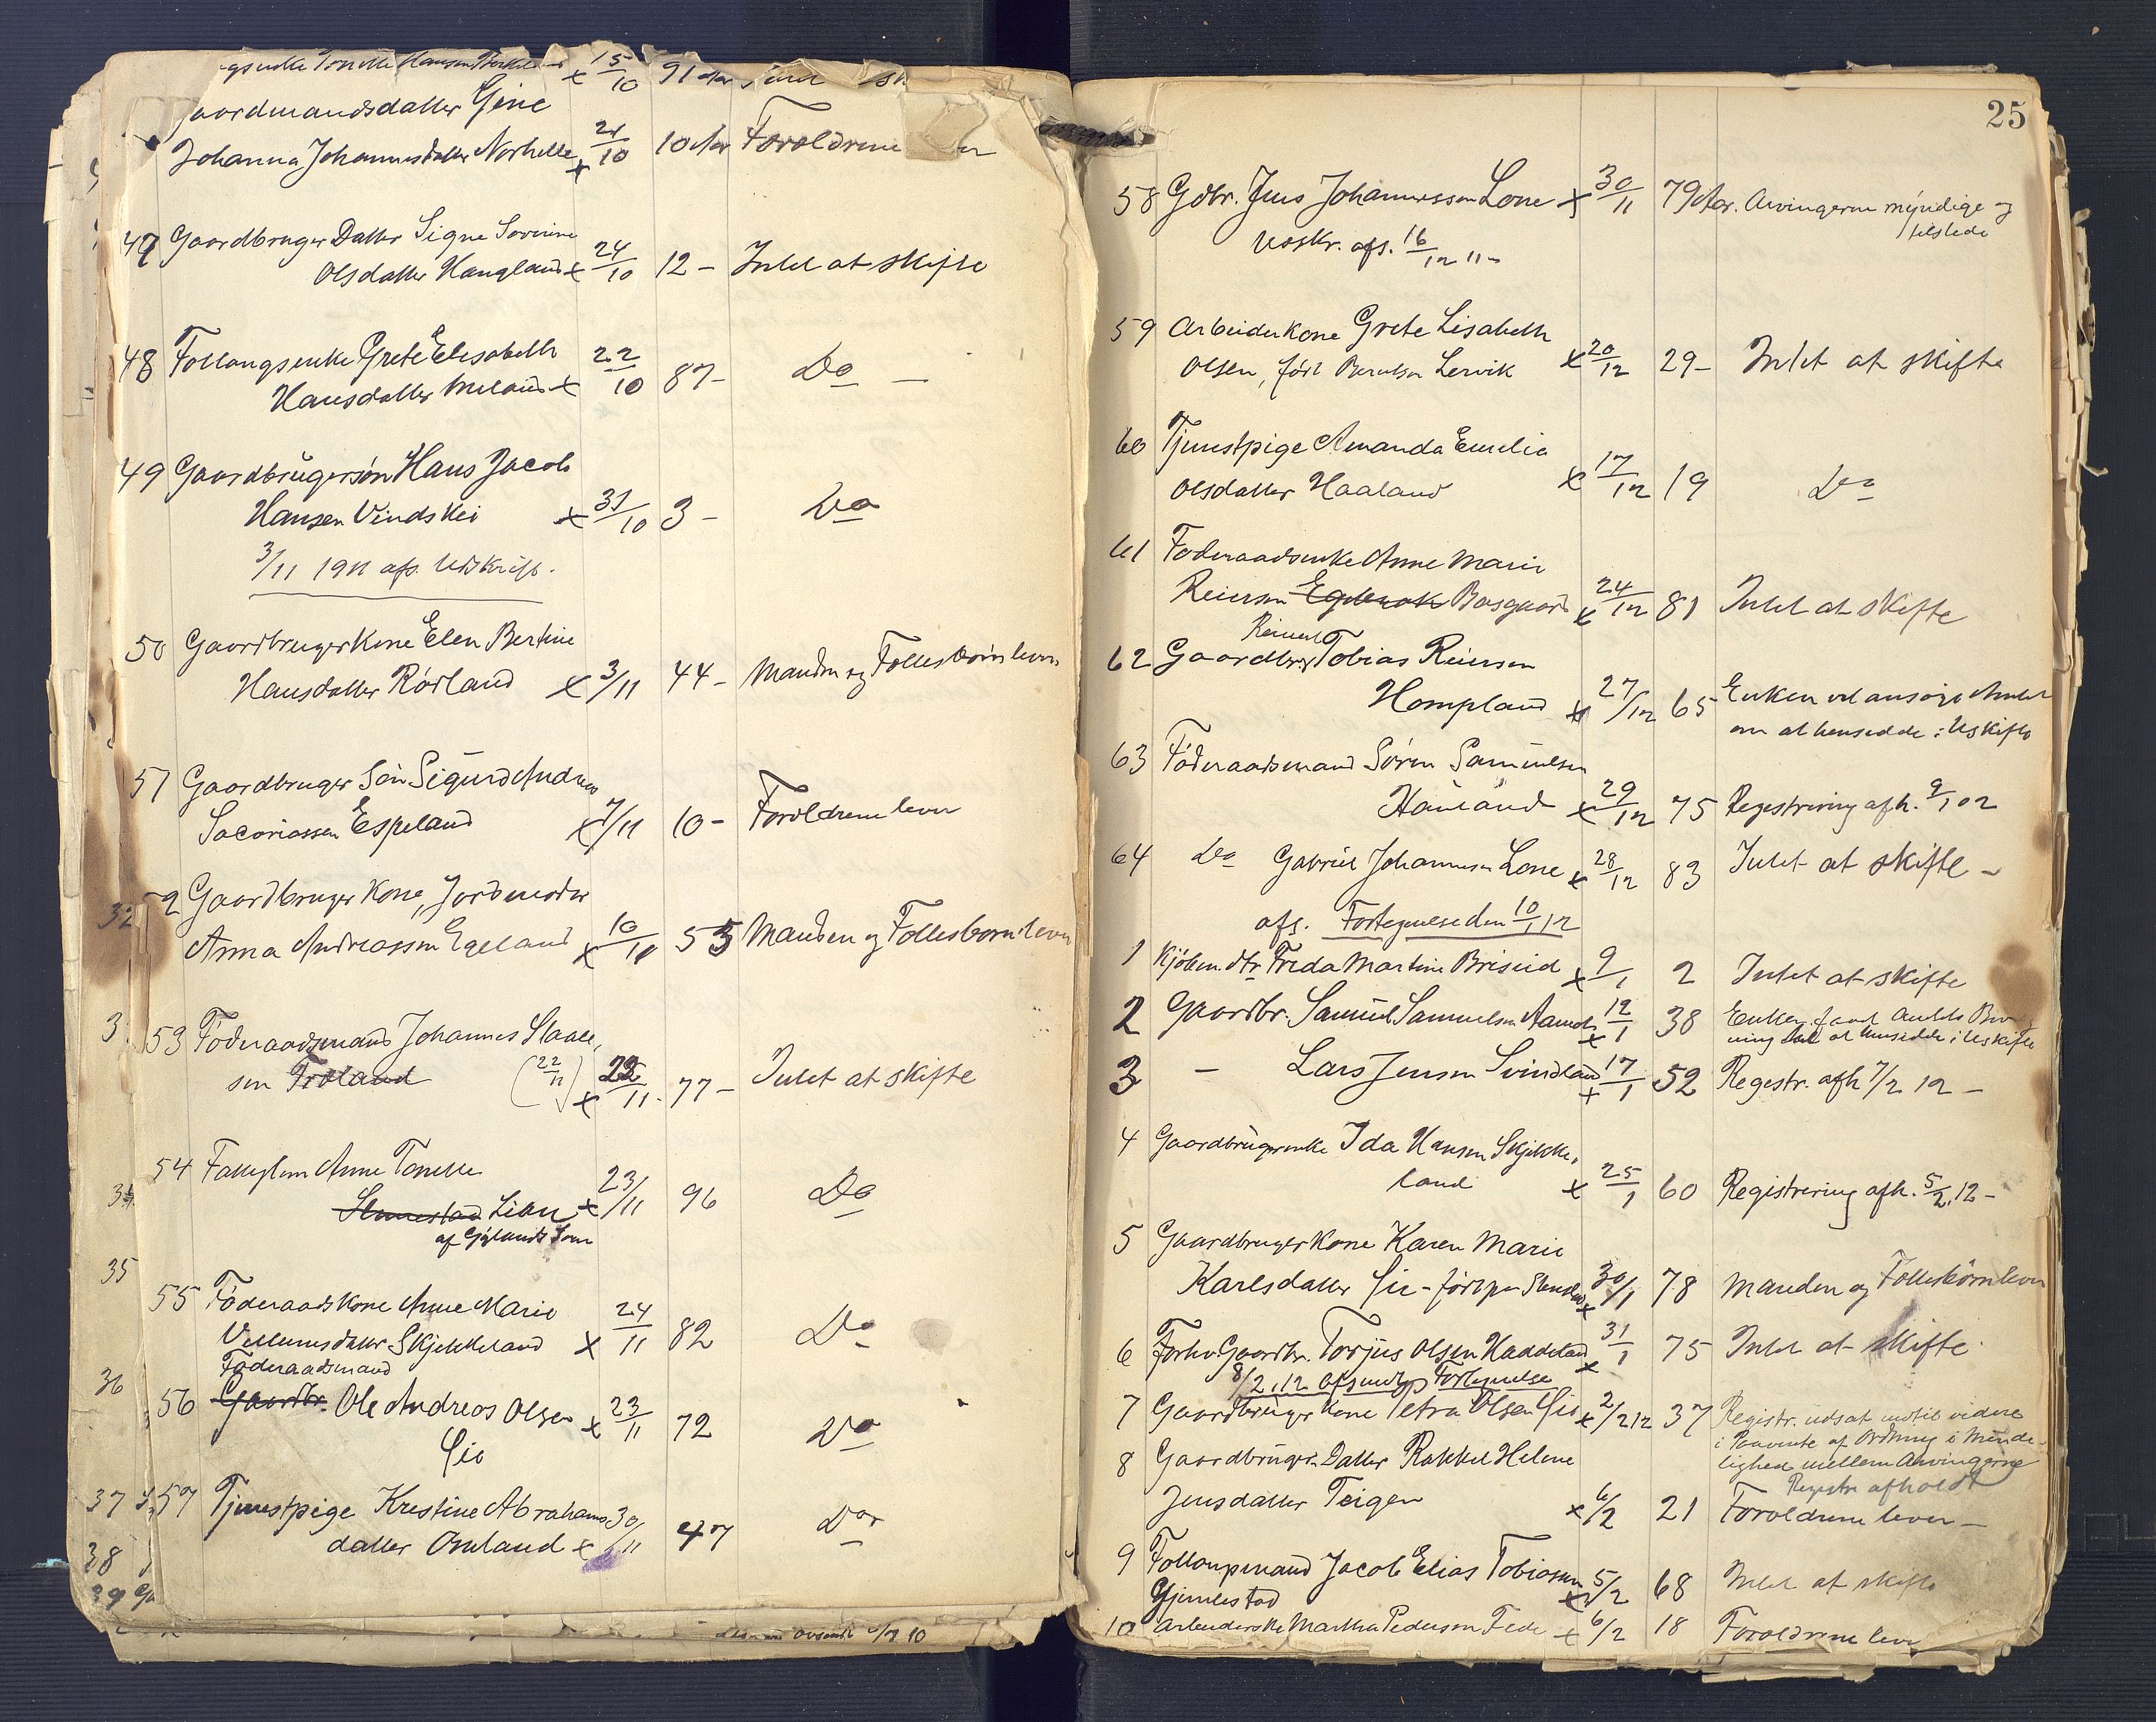 Tonette Hansen 15/10 91 Aar
Gaardmandsdatter Gine
Johanna Johannesdatter Norhelle x 21/10 10 Aar Forældrene
47 Gaardbruger Datter Signe Sovine
Olsdatter Haugland x 24/10 12 - Intet at skifte
48 Follaugsenke Grete Elisabeth
Hansdatter Meland x 22/10 87 - Do -
49 Gaardbrugersøn Hans Jacob
Hansen Vindskei x 31/10 3 - Do
3/11 1911 afs. Udskrift.
50 Gaardbruger Kone Elen Bertine
Hansdatter Rørland x 3/11 44 - Manden og Fællesbørn lever
51 Gaardbruger Søn Sigurd Andreas
Sacariassen Espeland x 7/11 10 - Forældrene lever
32 52 Gaardbruger Kone, Jordmoder
Anna Andreassen Egeland x 10/11 53 Manden og Fællesbørn lever
3 53 Føderaadsmand Johannes Staale-
sen Frøland (22/11) x 22/11. 77 - Intet at skifte
54 Fattiglem Anne Tonette
Stennestad Lian x 23/11 96 Do
af Gyland Sogn
35
55 Føderaads Kone Anne Marie
Vellumsdatter Skjekkeland x 24/11 82 Do
Føderaadsmand
36 56 Gaardbr. Ole Andreas Olsen x 23/11 72 Do
Lie
37 57 Tjenestpige Kristine Abrahams 30/11 47 Do
datter Omland x
38
39
25
58 Gdbr. Jens Johannessen Lone x 30/11 79 Aar. Arvingerne myndige og
tilstede
Udskr. afs. 16/12 11 -
59 Arbeider Kone Grete Lisabeth
Olsen, født Berntsen Lervik x 20/12 29 - Intet at skifte
60 Tjenestpige Amanda Emilie
Olsdatter Haaland x 17/12 19 Do
61 Føderaadsenke Anne Marie
Reiersen Egebrok Bosgaard x 24/12 81 Intet at skifte
62 Gaardbr. Tobias Reiersen
Hompland x 27/12 65 Enken vil ansøge Amtet
om at hensidde i Uskifte
63 Føderaadsmand Søren Samuelsen
Hauland x 29/12 75 Registrering afh. 9/1 12
64 Do Gabriel Johannesen Lone x 28/12 83 Intet at skifte -
afs. Fortegnelse den 10/1 12
1 Kjøbm. dtr Freda Martine Briseid x 9/1 2 Intet at skifte
2 Gaardbr. Samuel Samuelsen Aamodt x 12/1 38 Enken faaet Amtets Bevil
ning til at hensidde i Uskifte
3 - Lars Jensen Svindland x 17/1 52 Registr. afh 7/2 12 -
4 Gaardbrugerenke Ida Hansen Skjekke-
land x 25/1 60 Registrering afh. 5/2 12 -
5 Gaardbruger Kone Karen Marie
Karlsdatter Lie - født x 30/1 78 Manden og Fællesbørn lever
6 Forhv Gaardbr. Torjus Olsen Haddeland x 31/1 75 Intet at skifte
8/2 12 afsendt Fortegnelse
7 Gaardbruger Kone Petra Olsen Lie x 2/2 12 37 Registr. udsat indtil videre
i Paavente af Ordning i Minde-
lighed mellem Arvingerne
Registr afholdt
8 Gaardbruger Datter Rakkel Helene
Jensdatter Teigen x 6/2 21 Forældrene lever -
9 Follaugsmand Jacob Elias Tobiassen
Gjemlestad x 5/2 68 Intet at skifte
10 Arbeiderske Martha Pedersen Fede x 6/2 18 Forældrene lever